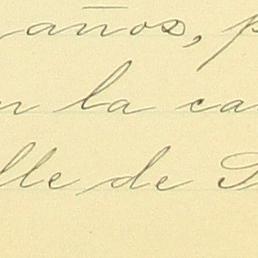 años, p
n la ca
lle de